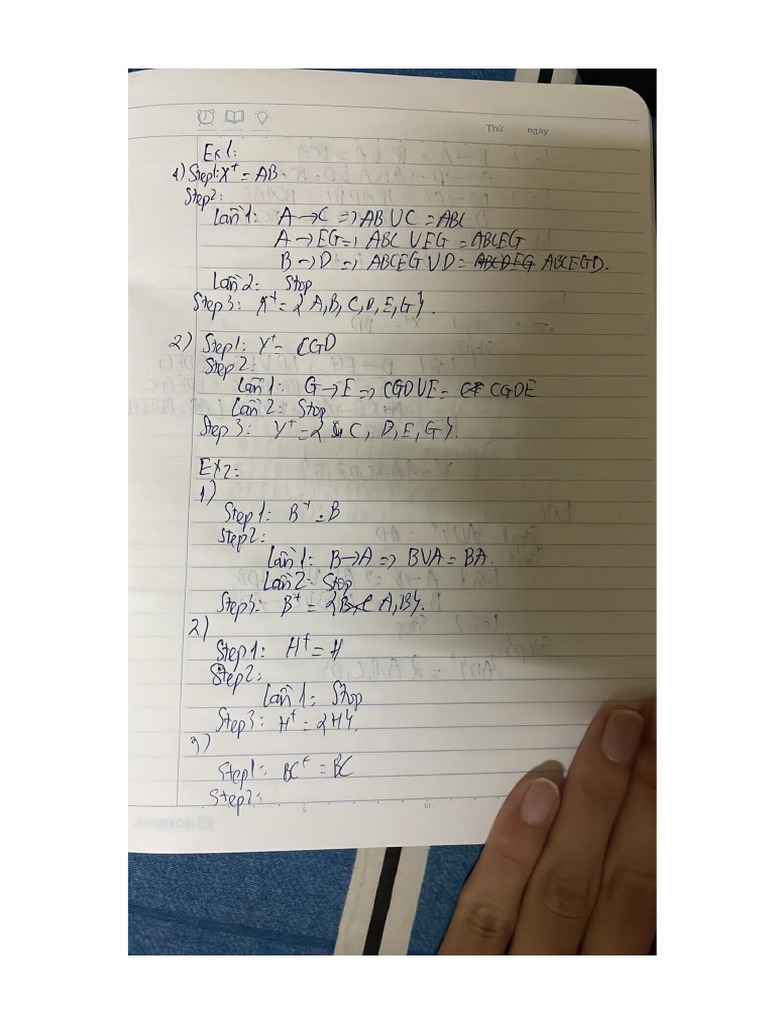 Thứ ngày
Ex1:
1) Step1: X⁺ = AB
Step2:
Lần 1: A → C => AB ∪ C = ABC
A → EG => ABC ∪ EG = ABCEG
B → D => ABCEG ∪ D = ABCDEG ABCEGD.
Lần 2: Stop
Step3: X⁺ = {A, B, C, D, E, G}.
2) Step1: Y⁺ = CGD
Step2:
Lần 1: G → E => CGD ∪ E = CGDE
Lần 2: Stop
Step 3: Y⁺ = { C, D, E, G}.
EX2:
1)
Step1: B⁺ = B
Step2:
Lần 1: B → A => B ∪ A = BA.
Lần 2: Stop
Step3: B⁺ = { A, B}.
2)
Step1: H⁺ = H
Step2:
Lần 1: Stop
Step3: H⁺ = {H}.
3)
Step1: BC⁺ = BC
Step2:
5 10